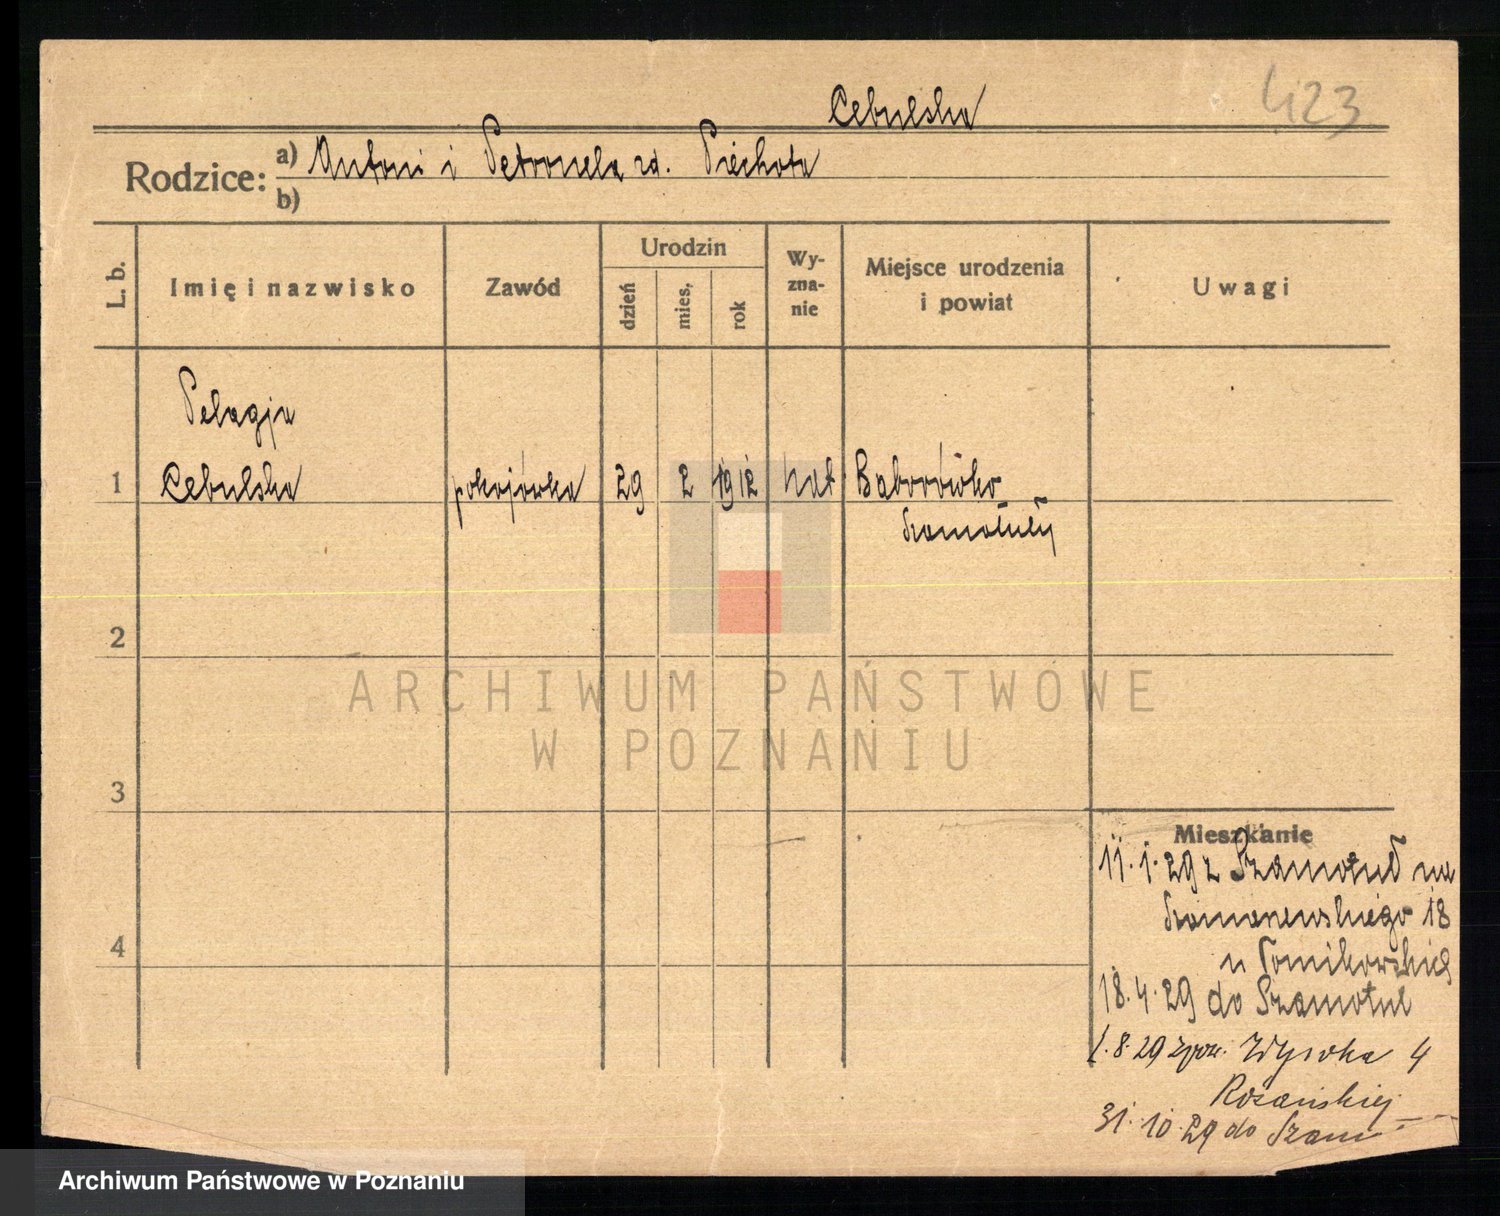 Cebulska
423
Rodzice: a) Antoni i Petronela zd. Piechota
b)
L. b.
Imię i nazwisko
Zawód
Urodzin
dzień
mies.
rok
Wy-
zna-
nie
Miejsce urodzenia
i powiat
Uwagi
Pelagja
1 Cebulska pokojówka 29 2 1912 kat Baborówko
Szamotuły
2
ARCHIWUM PAŃSTWOWE
W POZNANIU
3
Mieszkanie
11.1.29 z Szamotuł na
18
u Tomikowskich
4
18.4.29 do Szamotuł
1.8.29 4
Różańskiej
31.10.29 do Szam
Archiwum Państwowe w Poznaniu